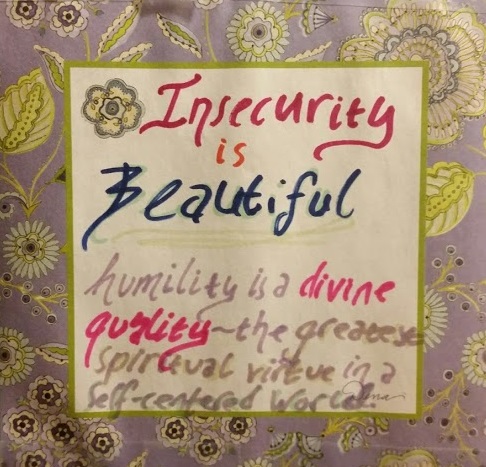 Insecurity
is
Beautiful
humility is a divine
quality~the greatest
spiritual virtue in a
self-centered world.